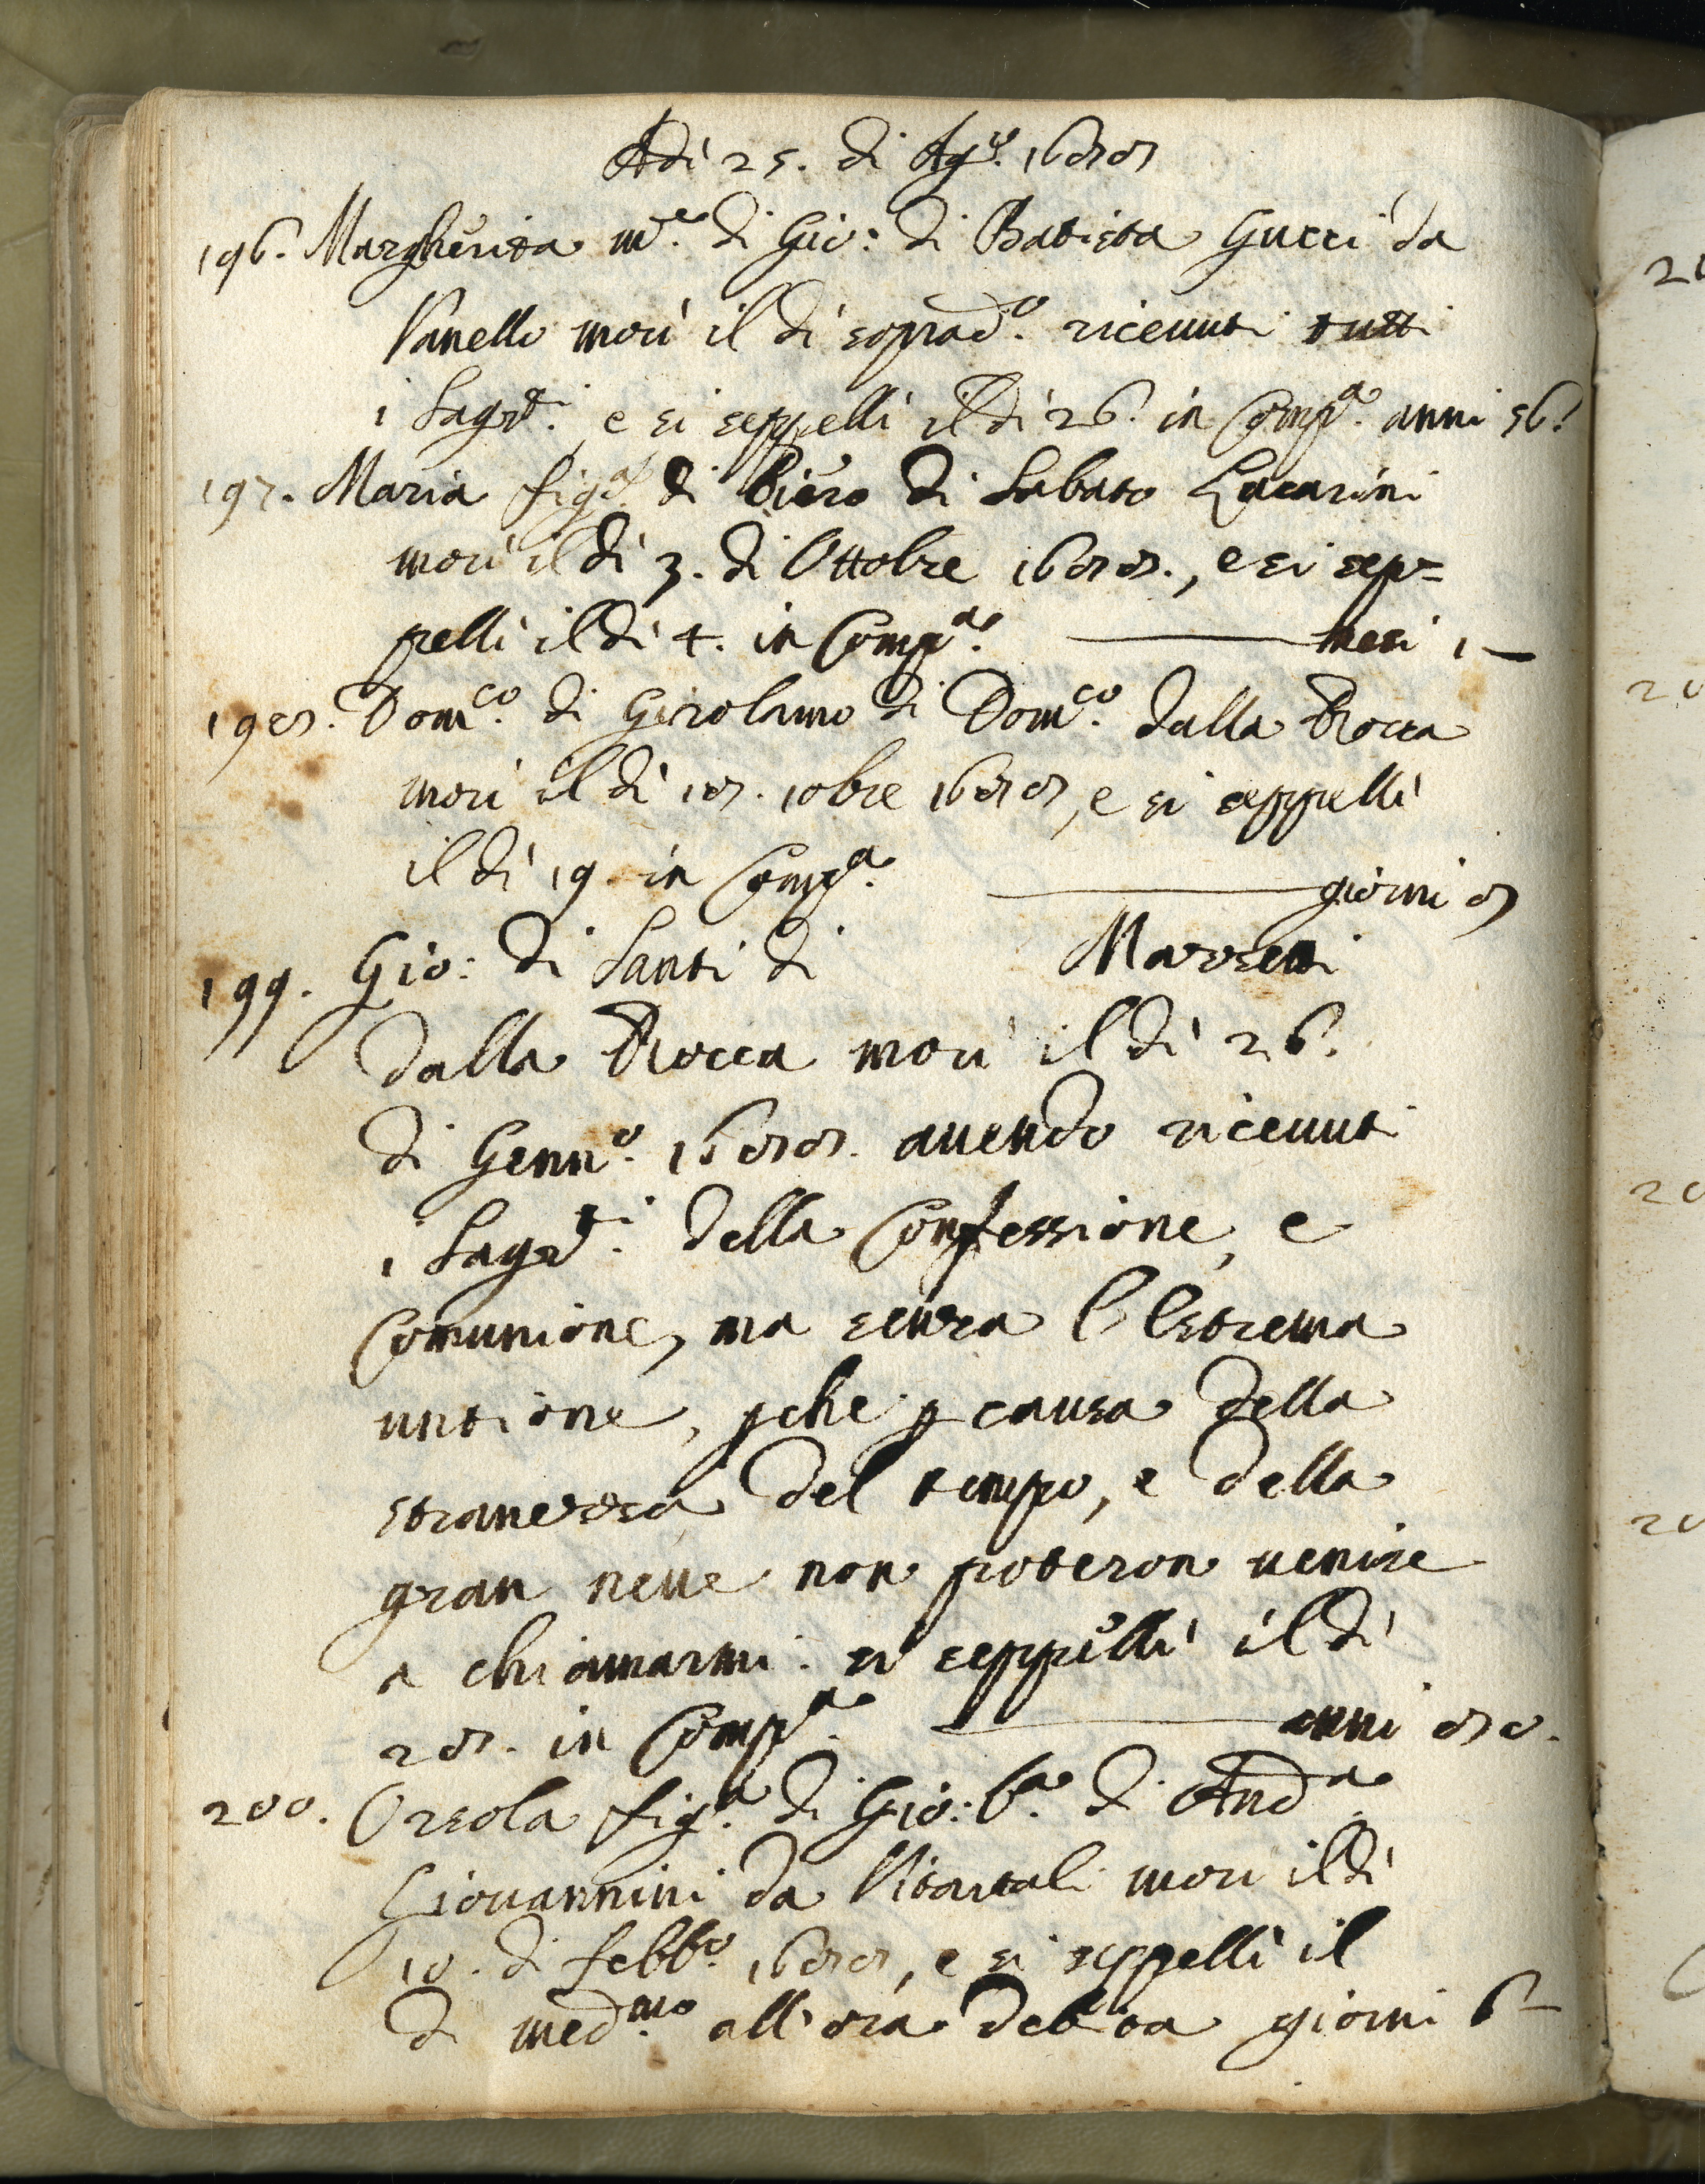 Adi 25. di Ag.to 1688
196. Margherita m.e di Gio: di Batista Gucci da
Vanello morì il dì soprad.o riceuuti tutti
i Sagr.ti e si seppellì il dì 26. in Comp.a anni 56.
197. Maria fig.a di Piero di Sabato Lacarini
morì il dì 3. di Ottobre 1688., e si sep=
pellì il dì 4. in Comp.a meri 1
198. Dom.co di Girolamo di Dom.co dalla Rocca
morì il dì 18. 10bre 1688, e si seppellì
il dì 19 in Comp.a giorni 8
199. Gio: di Santi di Marzetti
dalla Rocca morì il dì 26.
di Genn.o 1688. auendo riceuuti
i Sagr.ti della Confessione, e
Comunione, ma senza l'Estrema
untione, p che p causa della
stranezza del tempo, e della
gran neue non poteron uenire
a chiamarmi: si seppellì il dì
28. in Comp.a anni 80.
200. Orsola fig.a di Gio: B.a di And.a
Giouannini da morì il dì
10. di febb.o 1688, e si seppellì il
dì med.mo all'ora detta giorni 6
20
20
20
20